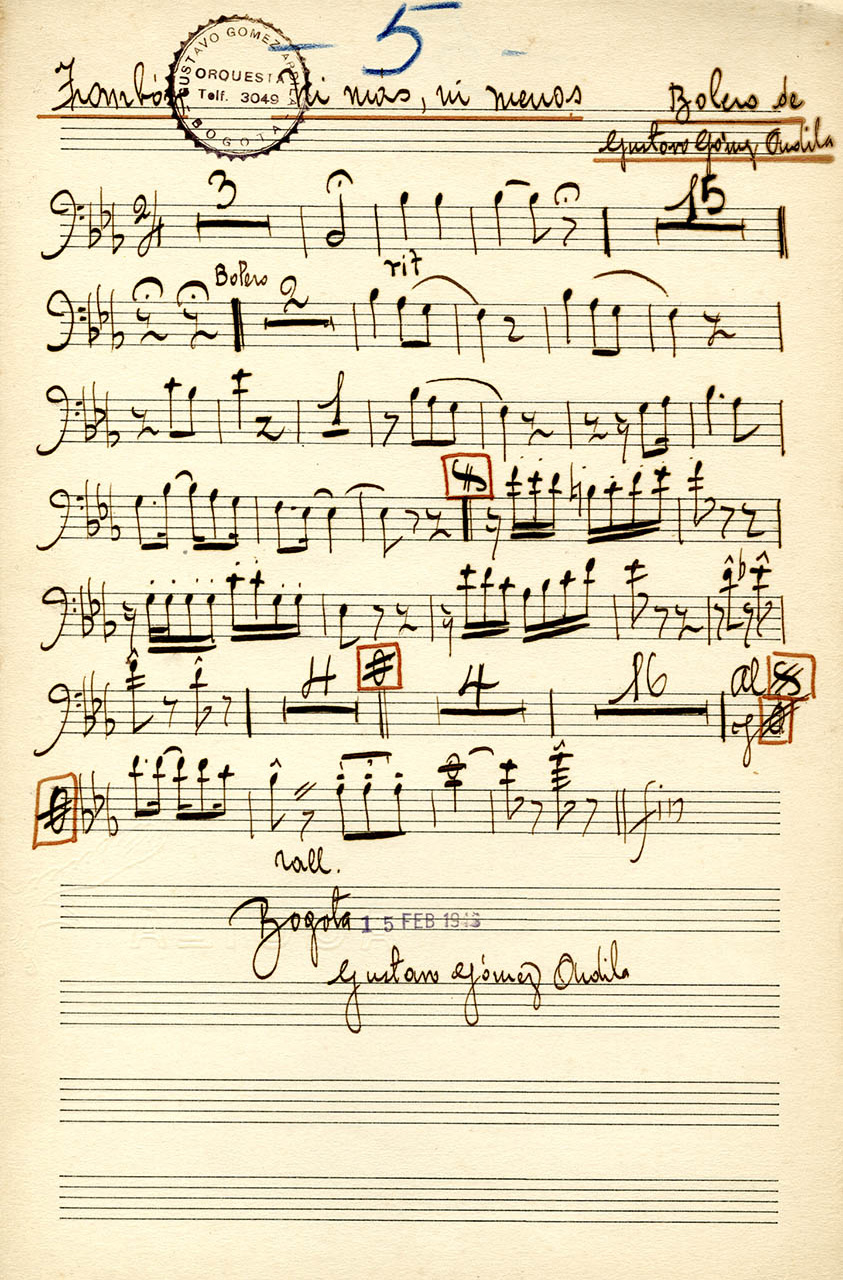 - 5 -
Trombón ni mas, ni menos
Bolero de
Gustavo Gómez Ardila
GUSTAVO GOMEZ ARDILA
ORQUESTA
Telf. 3049
BOGOTA
3
15
rit
Bolero
2
1
4
4
16
Al
y
fin
rall.
Bogota 15 FEB
Gustavo Gómez Ardila